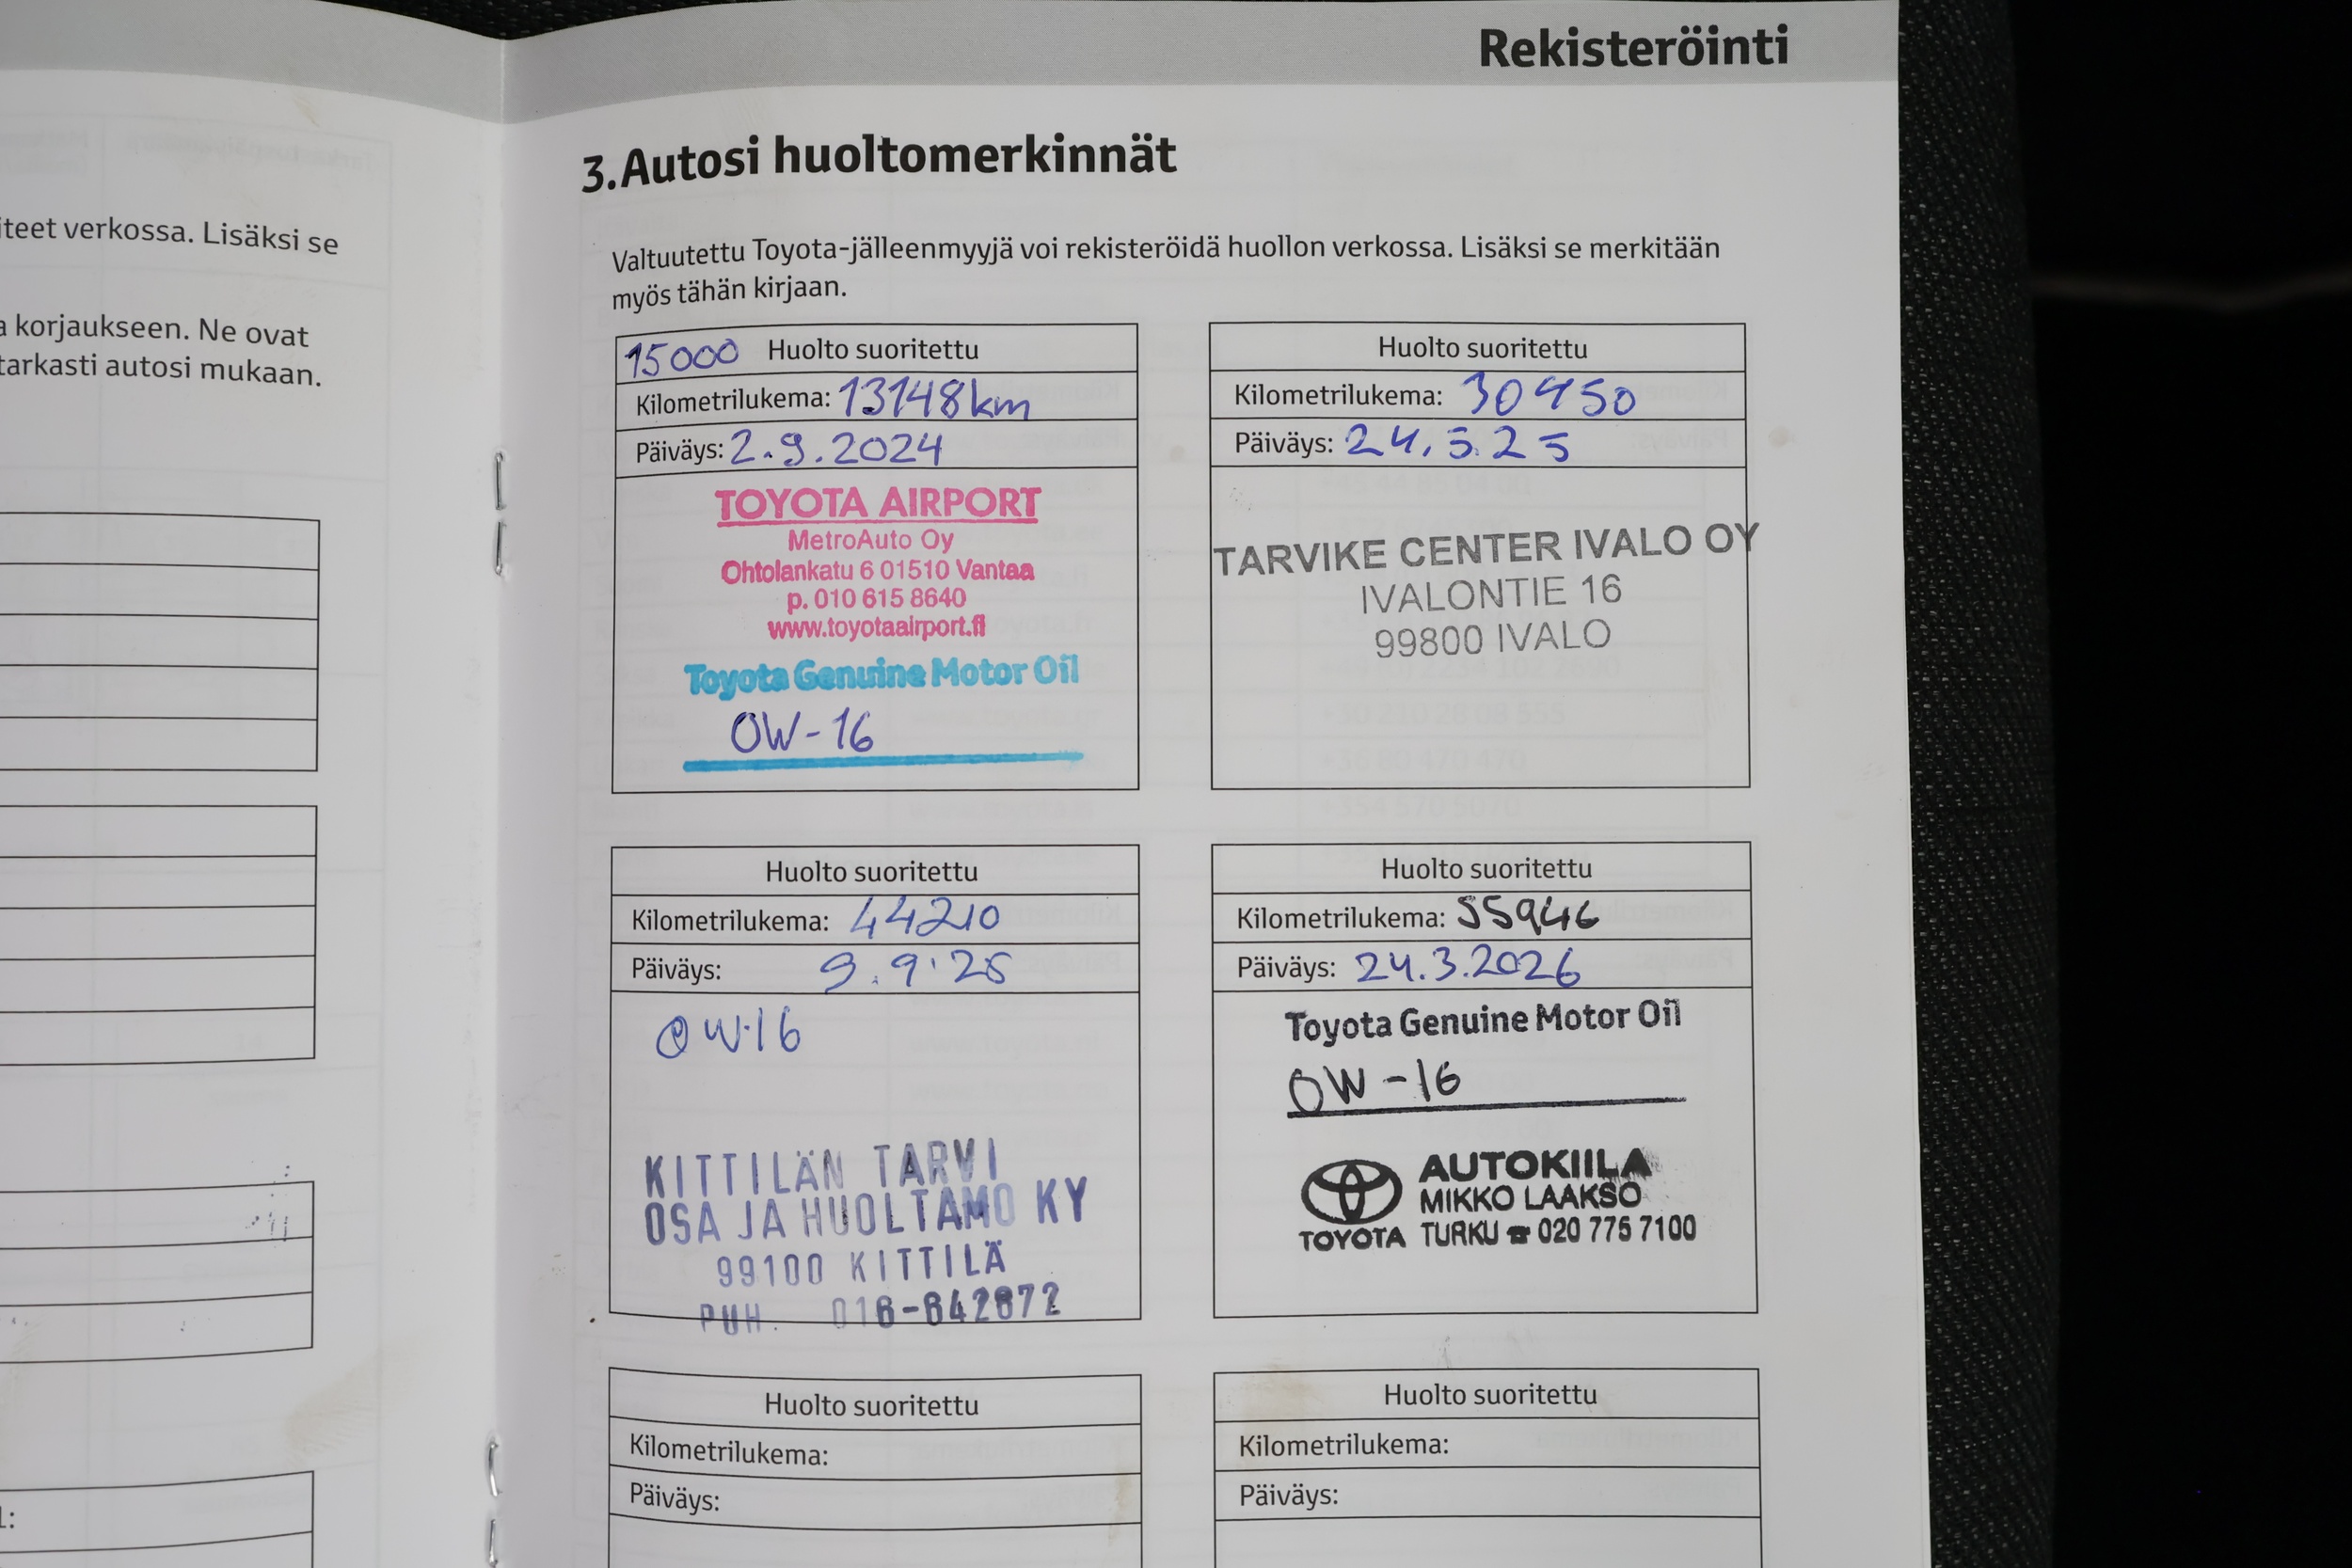 Rekisteröinti
iteet verkossa. Lisäksi se
a korjaukseen. Ne ovat
tarkasti autosi mukaan.
3. Autosi huoltomerkinnät
Valtuutettu Toyota-jälleenmyyjä voi rekisteröidä huollon verkossa. Lisäksi se merkitään
myös tähän kirjaan.
15000 Huolto suoritettu
Kilometrilukema: 13148km
Päiväys: 2.9.2024
TOYOTA AIRPORT
MetroAuto Oy
Ohtolankatu 6 01510 Vantaa
p. 010 615 8640
www.toyotaairport.fi
Toyota Genuine Motor Oil
0W-16
Huolto suoritettu
Kilometrilukema: 30450
Päiväys: 24.5.25
TARVIKE CENTER IVALO OY
IVALONTIE 16
99800 IVALO
Huolto suoritettu
Kilometrilukema: 44210
Päiväys: 9.9.25
0W-16
KITTILÄN TARVI
OSA JA HUOLTAMO KY
99100 KITTILÄ
PUH. 016-642872
Huolto suoritettu
Kilometrilukema: 55946
Päiväys: 24.3.2026
Toyota Genuine Motor Oil
0W-16
AUTOKIILA
MIKKO LAAKSO
TOYOTA TURKU ☎ 020 775 7100
Huolto suoritettu
Kilometrilukema:
Päiväys:
Huolto suoritettu
Kilometrilukema:
Päiväys: